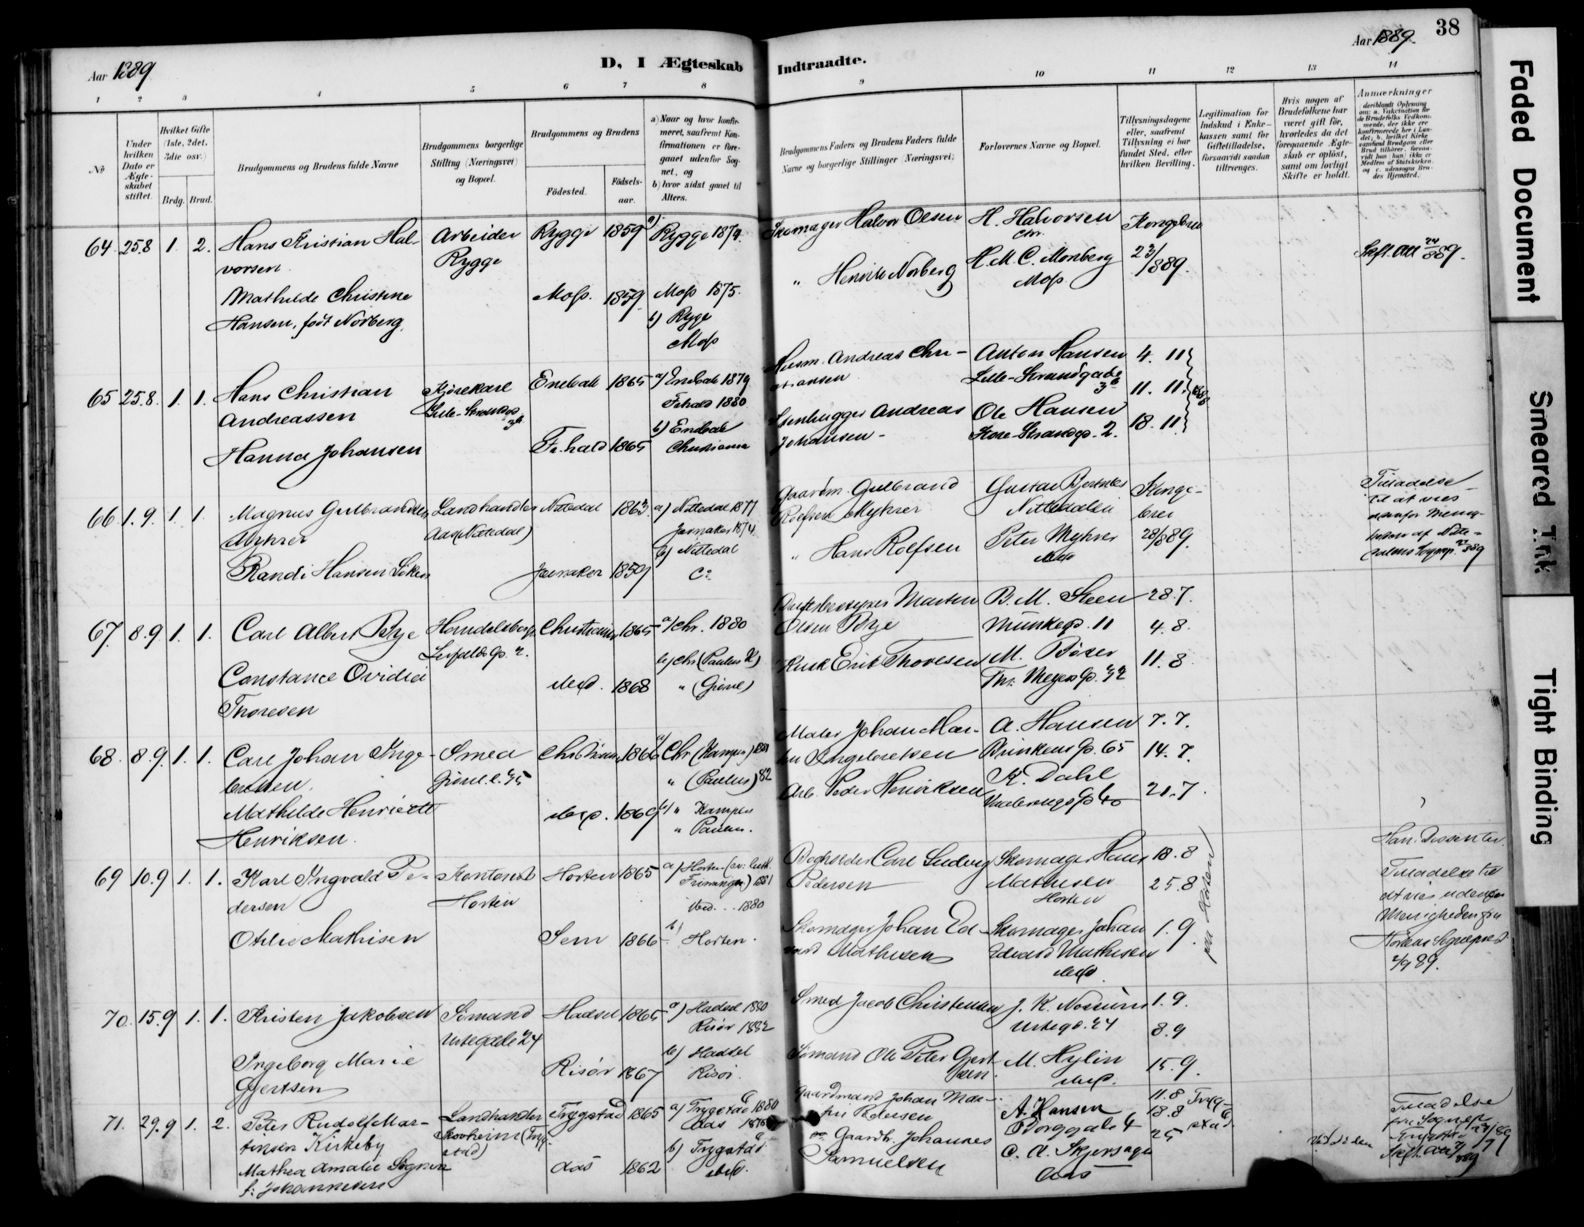 Aar 1889
D. I Ægteskab
Indtraadte.
Aar 1889.
38
1 2 3 4 5 6 7 8 9 10 11 12 13 14
No
Under hvilken Dato er Ægteskabet stiftet.
Hvilket Gifte (1ste, 2det, 3die osv.)
Brdg. Brud.
Brudgommens og Brudens fulde Navne
Brudgommens borgerlige Stilling (Næringsvei) og Bopæl.
Brudgommens og Brudens
Fødested.
Fødselsaar.
a) Naar og hvor konfirmeret, saafremt Konfirmationen er foregaaet udenfor Sognet, og
b) hvor sidst gaaet til Alters.
Brudgommens Faders og Brudens Faders fulde Navne og borgerlige Stillinger (Næringsvei)
Forlovernes Navne og Bopæl.
Tillysningsdagene eller, saafremt Tillysning ei har fundet Sted, efter hvilken Bevilling.
Legitimation for Indskud i Enkekassen samt for Giftetilladelse, forsaavidt saadan tiltrænges.
Hvis nogen af Brudefolkene har været gift før, hvorledes da det foregaaende Ægteskab er opløst, samt om lovligt Skifte er holdt.
Anmærkninger
64 25.8 1. 2. Hans Kristian Halvorsen
Arbeider Rygge
Rygge 1859
a) Rygge 1874.
Skomager Halvor Olsen
H. Halvorsen Chr.
Kongebrev 23/8 89.
Mathilde Christine Hansen, født Norberg.
Moss. 1859
Moss 1875.
b) Rygge
Moss
" Henrik Norberg
H. M. C. Monberg
Moss
65 25.8. 1. 1. Hans Christian Andreassen
Kjørekarl
Lille-Strandgd 3b
Enebak 1865
a) Enebak 1879
Frhald 1880
Husm. Andreas Christiansen
Anton Hansen
Lille-Strandgade 3b
4. 11
11. 11
18. 11
Hanna Johansen
Fr.hald 1865
b) Enebak
Christiania
Stenhugger Andreas Johansen
Ole Hansen
Store Strandg. 2.
66 1.9. 1. 1. Magnus Gulbrandsen Myhrer
Landhandler
Aas (Nittedal)
Nittedal 1863
a) Nittedal 1877
Jevnaker 1874
Gaardm. Gulbrand Rolfsen Myhrer
Gustav Bjertnes
Nittedalen
Kongebrev 28/8 89.
Tilladelse til at vies udenfor Menigheden af Nittedalens Sognep.
Randi Hansen Løken
Jevnaker 1859
b) Nittedal
" Hans Rolfsen
Peter Myhrer
67. 8.9. 1. 1. Carl Albert Bye
Handelsborger
Christiania 1865
a) Chr. 1880
Marten Olsen Bye
B. M. Steen
Munkeg. 11
28.7.
4. 8.
11. 8
Constance Ovidia Thoresen
ibid. 1868
b) Chr (Paulus K)
" (Grønl)
Kusk Erik Thoresen
M. Bøxer
Thv. Meyers G. 42
68. 8.9. 1. 1. Carl Johan Ingebretsen.
Smed
Grønl.l. 45
Christiania 1866
a) Chr (Kampen)
" (Paulus) 82
Maler Johan Martin Ingebretsen
A. Hansen
Munkens G. 65
7. 7.
14. 7.
21. 7
Mathilde Henriette Henriksen.
ibid. 1869
b) " Kampen
" Paulus.
Arb. Peder Henriksen
K. Dahl
69 10.9 1. 1. Karl Ingvald Pedersen
Kontorist
Horten
Horten 1865
Bogholder Carl Ludvig Pedersen
Skomager Hans Mathisen
Horten
18. 8
25. 8
1. 9.
paa Horten
Han Dissenter.
Tilladelse til at vies udenfor Menigheden fra Hortens Sognepræst 2/9 89.
Otilie Mathisen
Sem 1866
b) Horten.
Skomager Johan Edvard Mathisen
Skomager Johan Edvard Mathisen
ibid
70. 15.9 1. 1. Kristen Jakobsen
Sømand
Urtegade 24
Hadsel 1865
a) Hadsel 1880
Risør 1882
Smed Jacob Christensen
Urteg. 24
1. 9.
8. 9
15. 9.
Ingeborg Marie Gjertsen
Risør 1867
b) Hadsel
Risør.
Sømand Ole Peter Gjertsen
M. Hylin
ibid.
71. 29.9 1. 2. Peter Rudolf Martinsen Kirkeby
Landhandler
Skovheim (Trygstad)
Trygstad 1865
a) Trygstad 1880
Aas 1876
Gaardmand Johan Martin Pedersen
A. Hansen
Borggade 4
11. 8
18. 8
25
Trygstad
Tilladelse fra Sognepr.
Mathea Amalie Sogner f. Johannesen
Aas 1862
b) Trygstad
ibid.
Gaardb. Johannes Samuelsen
C. A. Skjorsager
Aas
Faded Document
Smeared Ink
Tight Binding